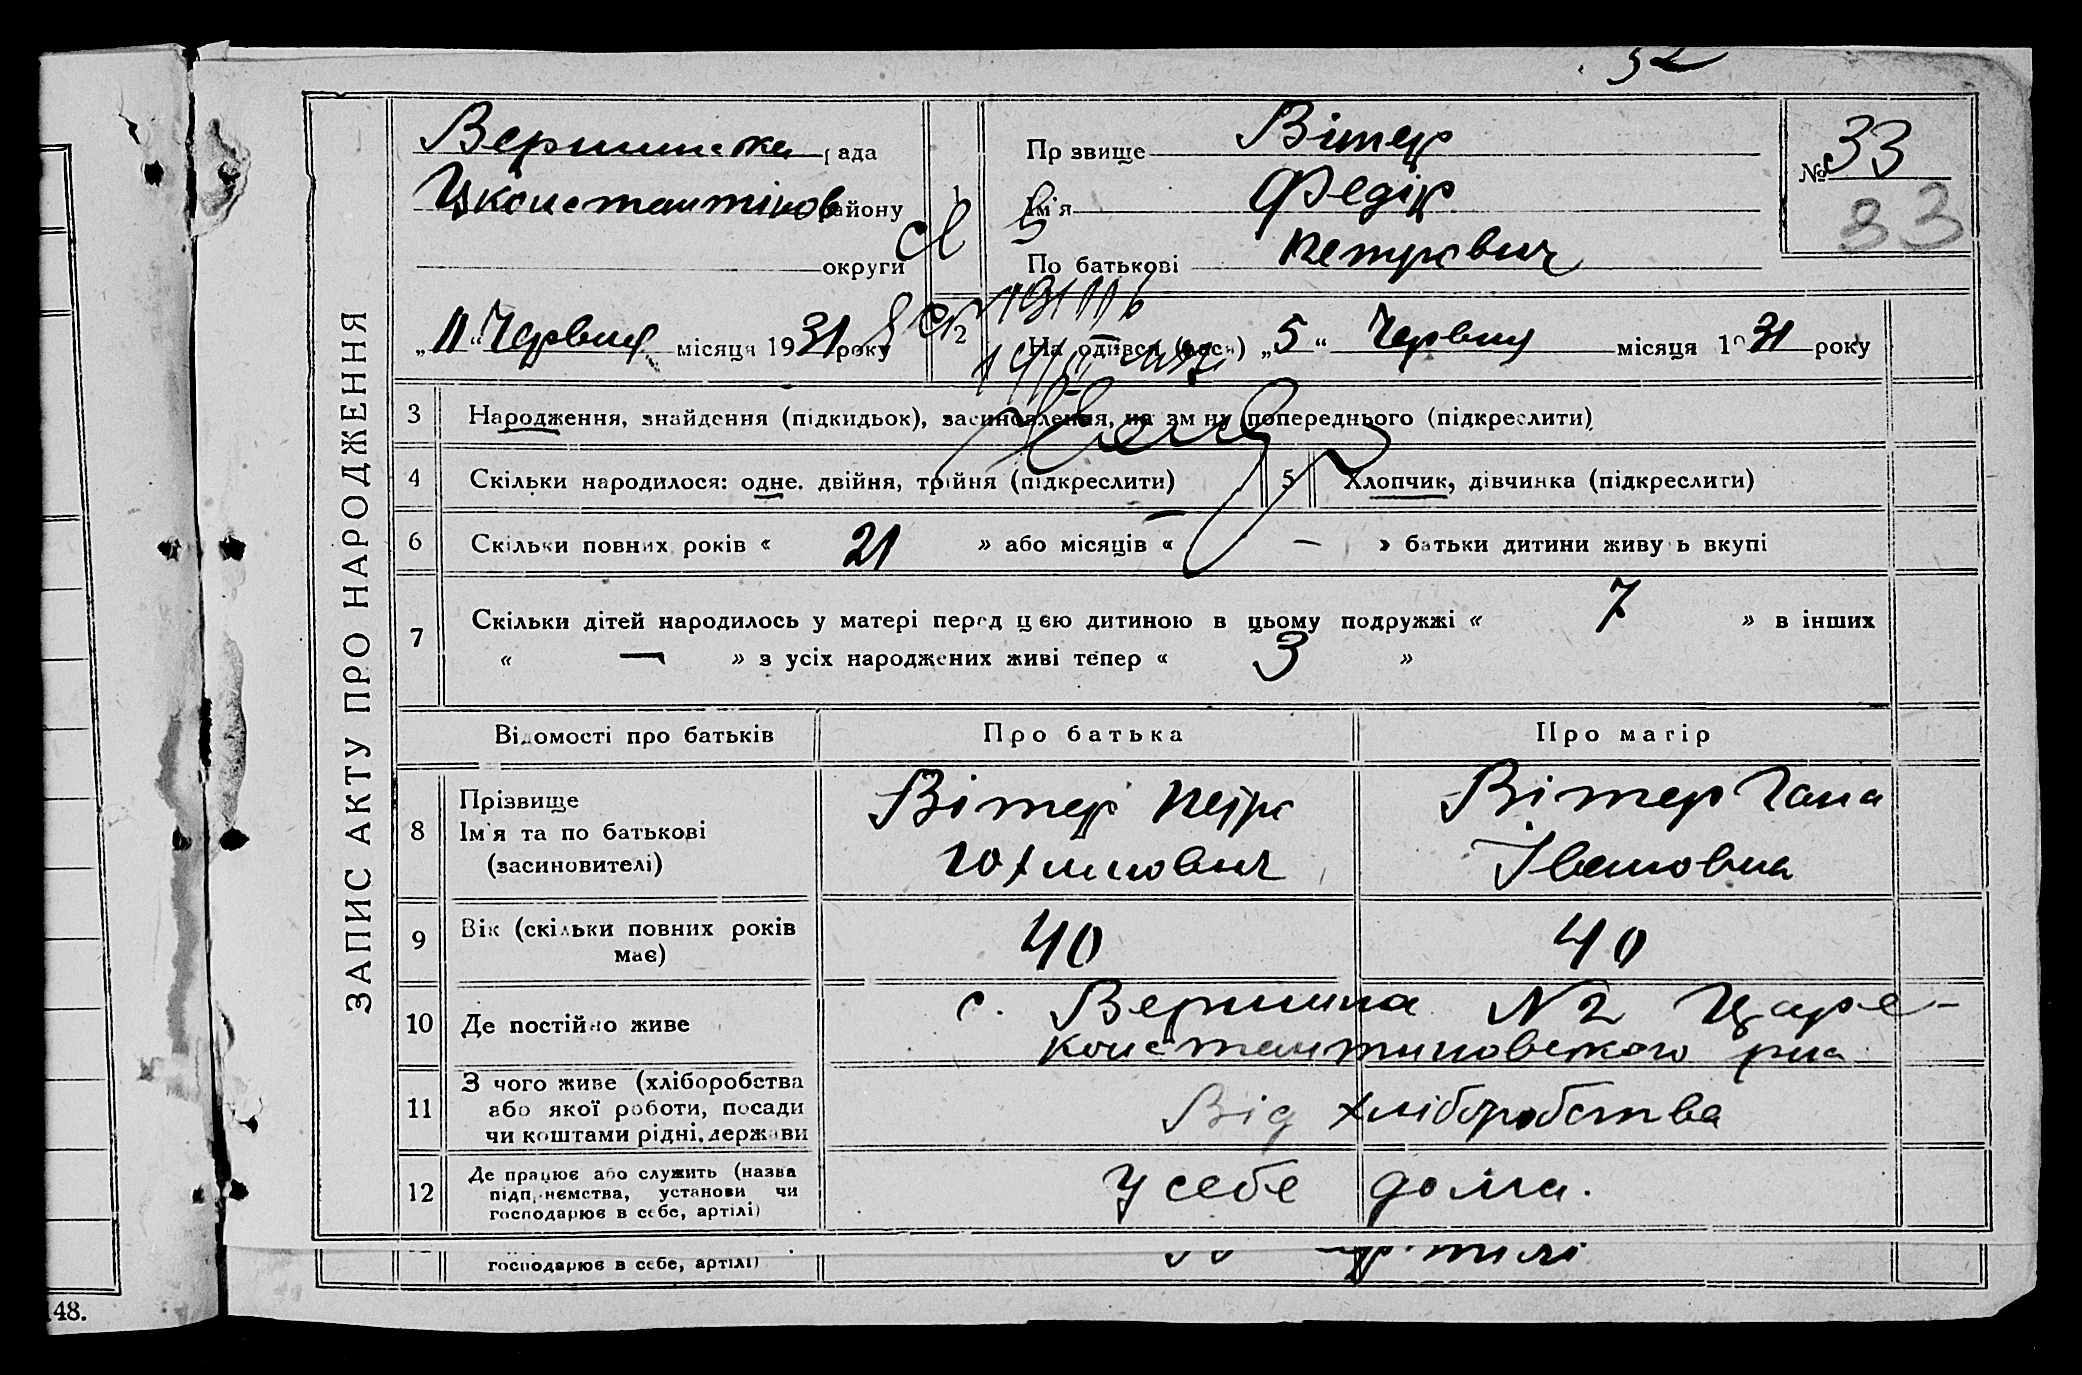 32
ЗАПИС АКТУ ПРО НАРОДЖЕННЯ
Вершинська рада
Цконстантінов району
округи
Прзвище Вітер
Ім'я Федір
По батькові Петрович
№ 33
33
„11“ Червня місяця 1931 року
1
2
На одився (лась) „5“ Червня місяця 1931 року
3 Народження, знайдення (підкидьок), засиновлення, на зм ну попереднього (підкреслити)
4 Скільки народилося: одне, двійня, трійня (підкреслити) 5 Хлопчик, дівчинка (підкреслити)
6 Скільки повних років « 21 » або місяців « — » батьки дитини живу ь вкупі
7 Скільки дітей народилось у матері перед цією дитиною в цьому подружжі « 7 » в інших
« — » з усіх народжених живі тепер « 3 »
Відомості про батьків Про батька Про матір
8 Прізвище Ім'я та по батькові (засиновителі)
Вітер Петро Юхимович
Вітер Гана Івановна
9 Вік (скільки повних років має) 40 40
10 Де постійно живе с. Вершина N2 Царе-
константиновского рна
11 З чого живе (хліборобства
або якої роботи, посади
чи коштами рідні, держави
Від хліборобства
12 Де працює або служить (назва
підп иємства, установи чи
господарює в себе, артілі)
У себе дома.
господарює в себе, артілі)
148.